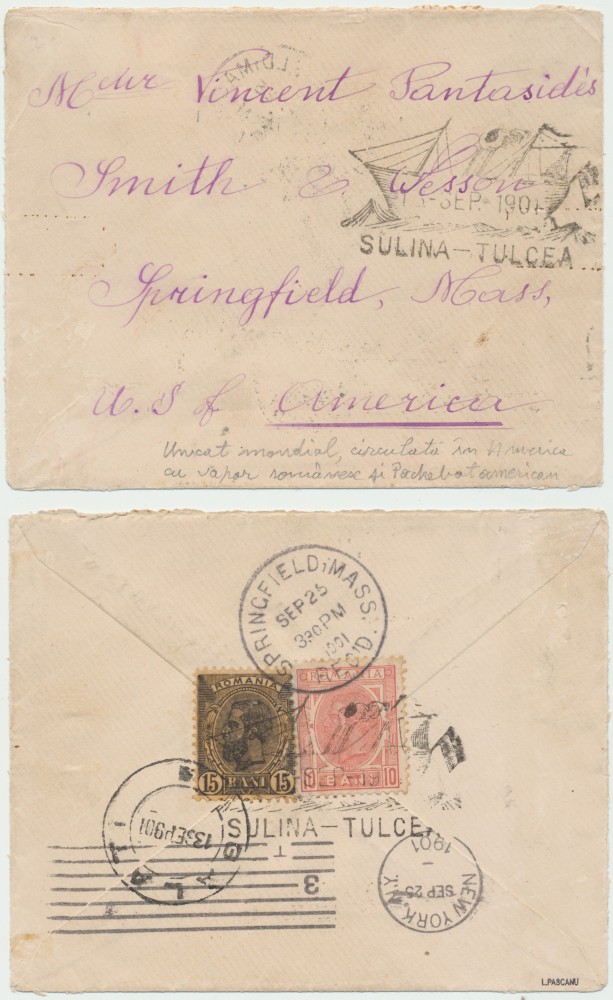 Mdur Vincent Pantasidès
Smith & Wesson
13-SEP.-1901
SULINA-TULCEA
Springfield, Mass,
U.S of America
Unicat mondial, circulată în America
cu vapor românesc și Pachebot american
SPRINGFIELD, MASS.
SEP 25
330 PM
1901
REC'D.
ROMANIA
15 BANI 15
ROMANIA
10 BANI 10
SULINA-TULCEA
GALATI
13 SEP 901
T
3
NEW YORK, N.Y.
SEP 25
1901
L.PASCANU